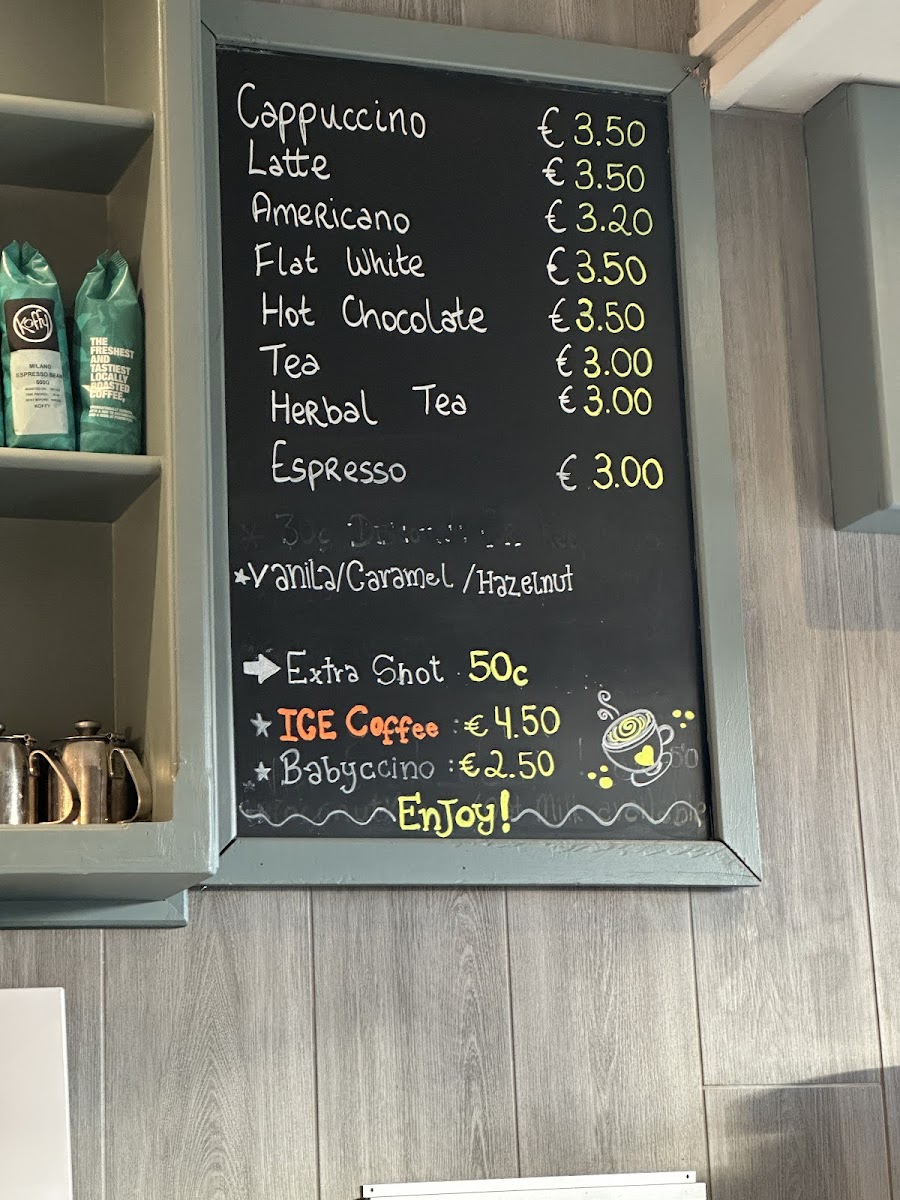 Cappuccino € 3.50
Latte € 3.50
Americano € 3.20
Flat White € 3.50
Hot Chocolate € 3.50
Tea € 3.00
Herbal Tea € 3.00
Espresso € 3.00
* 30c
*Vanila/Caramel/Hazelnut
Extra Shot 50c
ICE Coffee : € 4.50
Babyccino : € 2.50
Enjoy!
Koffy
MILANO
ESPRESSO BEANS
500G
KOFFY
THE
FRESHEST
AND
TASTIEST
LOCALLY
ROASTED
COFFEE,